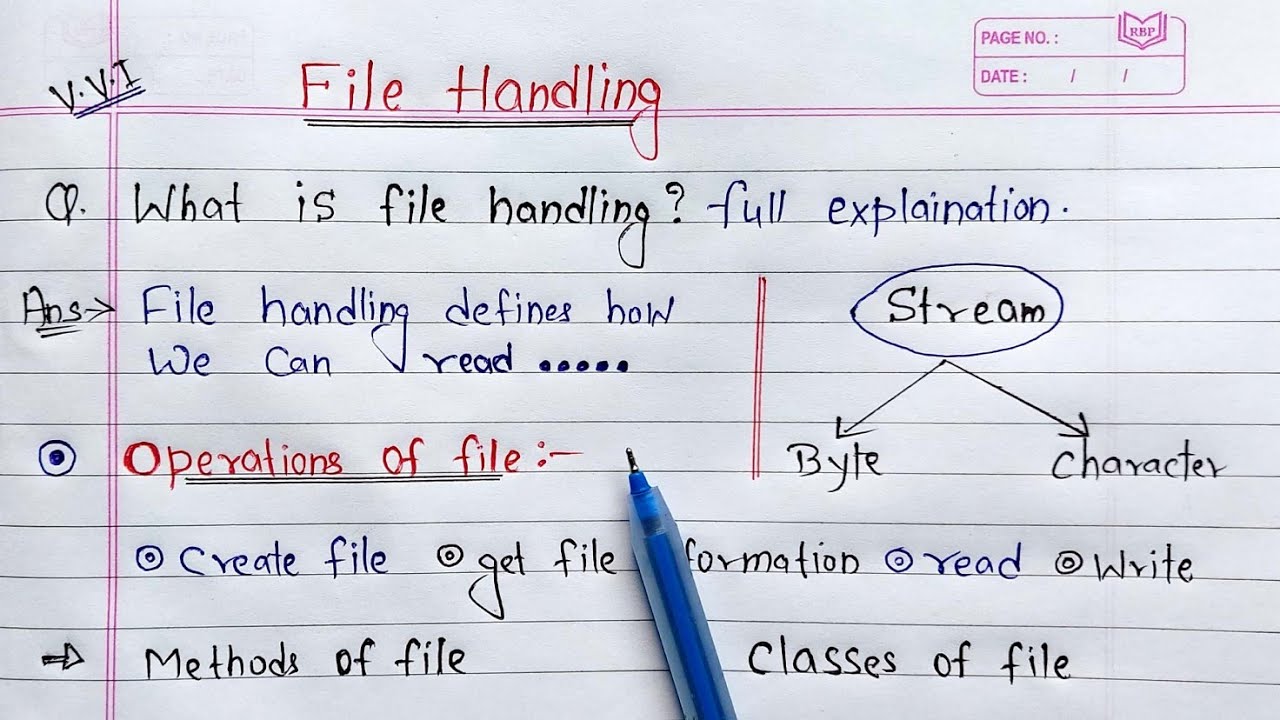 PAGE NO. :
RBP
DATE : / /
V.V.I
File Handling
Q. What is file handling? full explaination.
Ans→ File handling defines how
We Can read .....
Stream
Byte Character
Operations of file:-
Create file get file formation read Write
⇒ Methods of file Classes of file